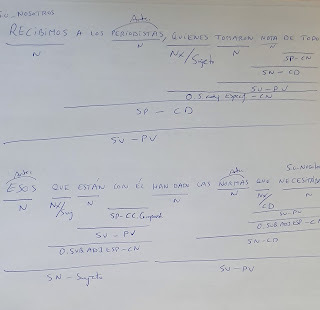 S.O. NOSOTROS
Antec
RECIBIMOS A LOS PERIODISTAS, QUIENES TOMARON NOTA DE TODO
N N NX/Sujeto N N
SP-CN
SN-CD
SV-PV
O.S. Adj Espec-CN
SP-CD
SV-PV
Antec Antec
ESOS QUE ESTÁN CON ÉL HAN DADO LAS NORMAS QUE NECESITÁ
N NX/Suj N N N NX/CD N
SP-CC Compañía SV-PV
SV-PV O.SUB ADJ ESP-CN
O.SUB ADJ ESP-CN SN-CD
SN-Sujeto SV-PV